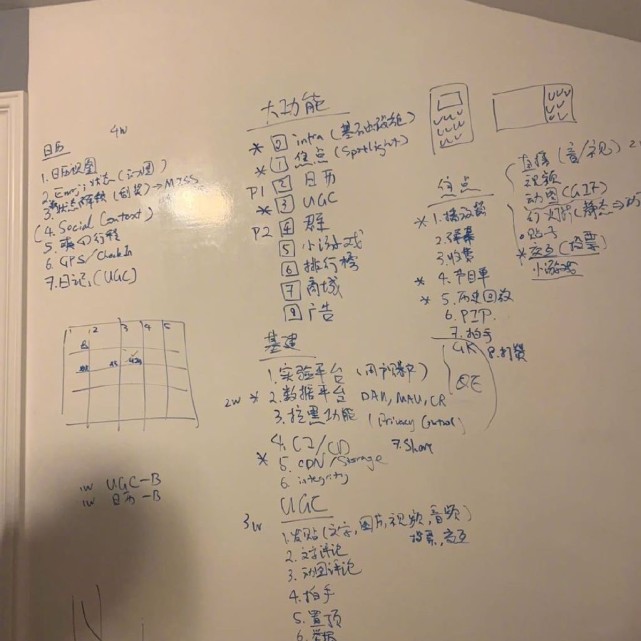 大功能
* 0 infra (基础设施)
* 1 焦点 (Spotlight)
P1 2 日历
* 3 UGC
P2 4 群
5 小游戏
6 排行榜
7 商城
8 广告
日历 4W
1. 日历视图
2. Emoji 状态
4. Social (Context)
6. GPS/Check In
7. 日记 (UGC)
1 2 3 4 5
1W UGC-B
1W 日历-B
焦点
* 1. 播放器
2. 弹幕
3. 收集
* 4. 节目单
* 5. 历史回放
6. PIP.
7. 拍手
8. 打赏
直播 (音/视)
视频
动图 (GIF)
幻灯片 (静态⇒动)
贴子
* 交互 (投票)
小游戏
基建
1. 实验平台
2W * 2. 数据平台 DAU, MAU, CR
3. 拉黑功能 (Privacy Control)
4. CI/CD
7. Share
* 5. CDN/Storage
6. integrity
UGC
3W
1. 发贴 (文字, 图片, 视频, 音频)
投票, 交互
2. 文字评论
3. 动图评论
4. 拍手
5. 置顶
6. 举报